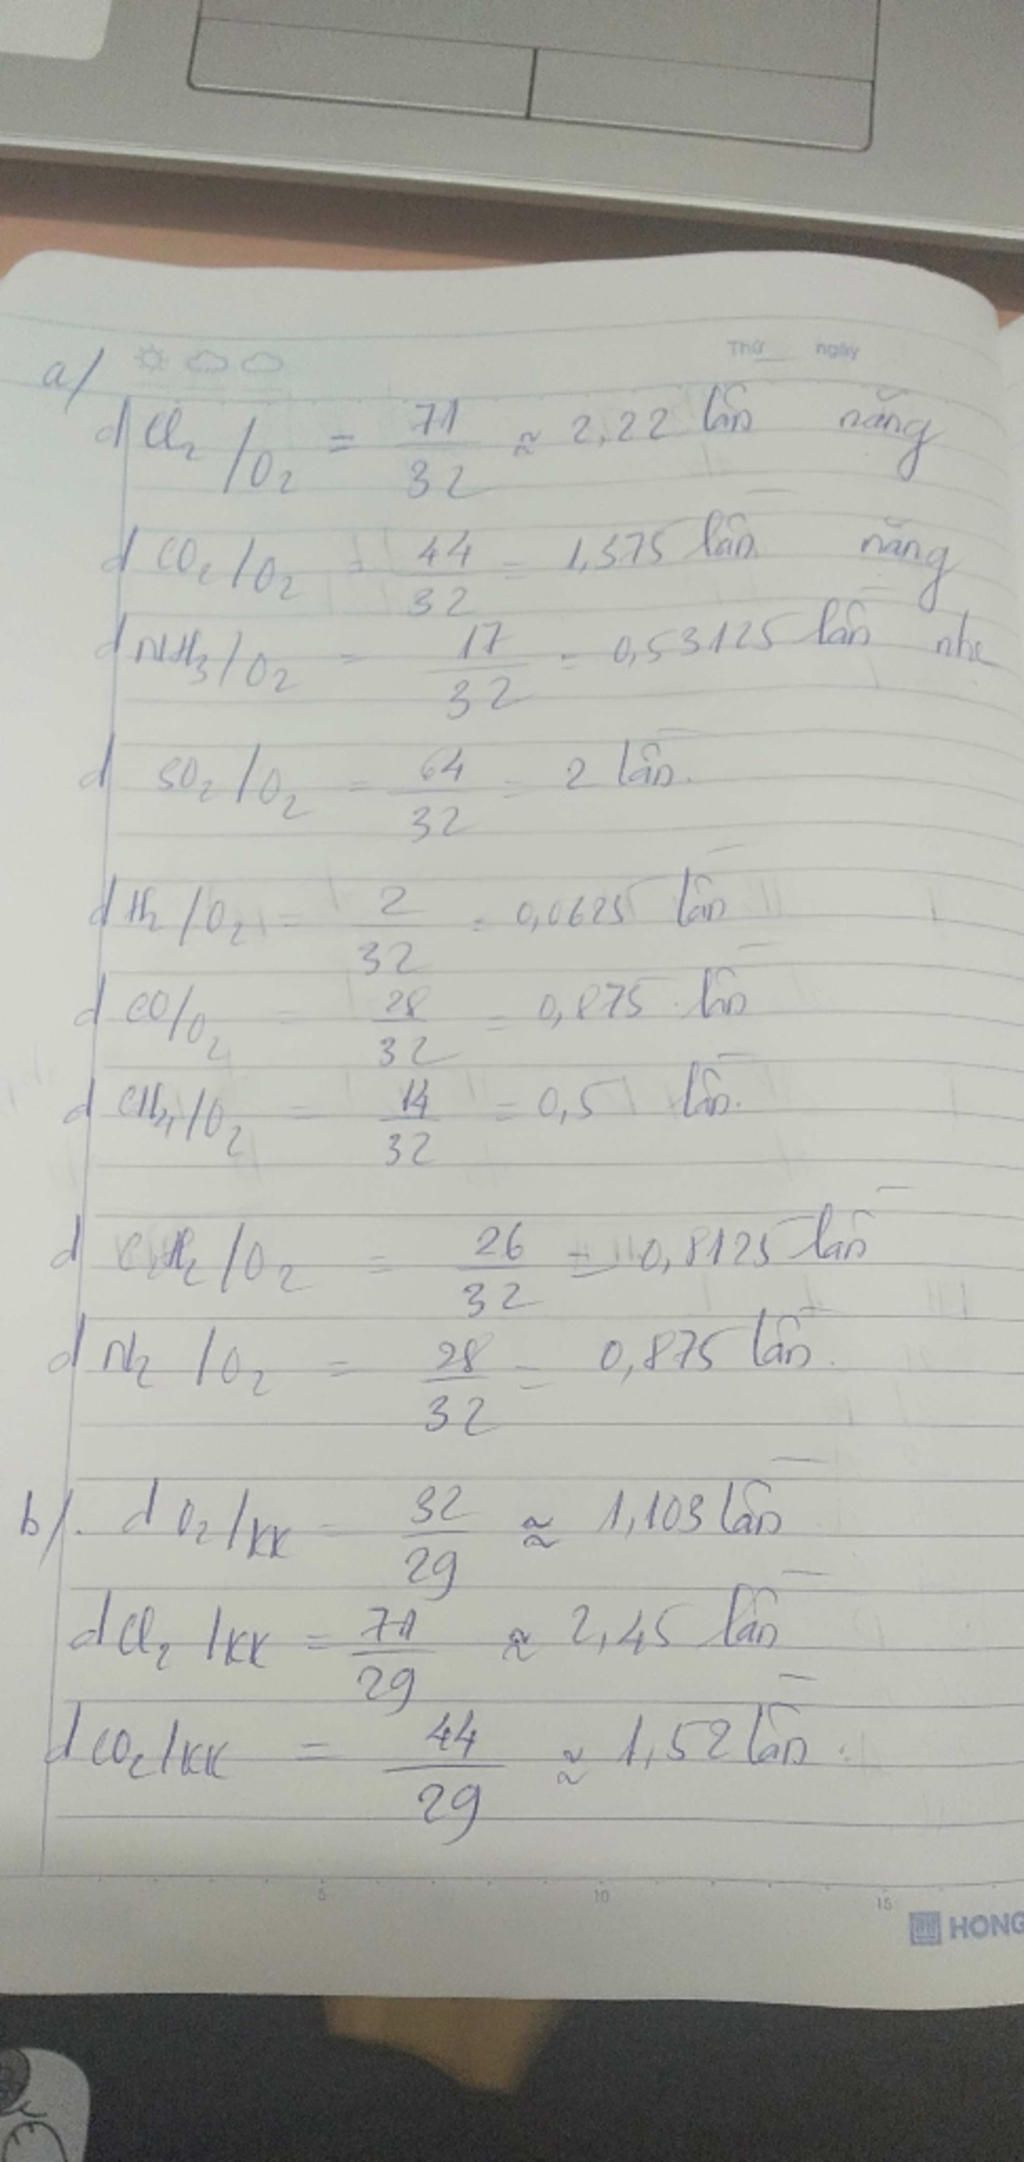 Thứ ngày
a/
d Cl2/O2 = 71/32 ≈ 2,22 lần nặng
d CO2/O2 = 44/32 = 1,375 lần nặng
d NH3/O2 = 17/32 = 0,53125 lần nhẹ
d SO2/O2 = 64/32 = 2 lần.
d H2/O2 = 2/32 = 0,0625 lần
d CO/O2 = 28/32 = 0,875 lần
d CH4/O2 = 14/32 = 0,5 lần.
d C2H2/O2 = 26/32 = 0,8125 lần
d N2/O2 = 28/32 = 0,875 lần.
b/. d O2/KK = 32/29 ≈ 1,103 lần
d Cl2/KK = 71/29 ≈ 2,45 lần
d CO2/KK = 44/29 ≈ 1,52 lần.
5 10 15
HONG